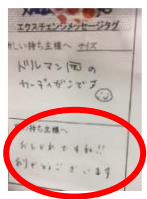 エクスチェンジメッセージタグ
しい持ち主様へ サイズ
ドルマン の
カーディガンです
い持ち主様へ
おしゃれですね!!
ありがとうございます